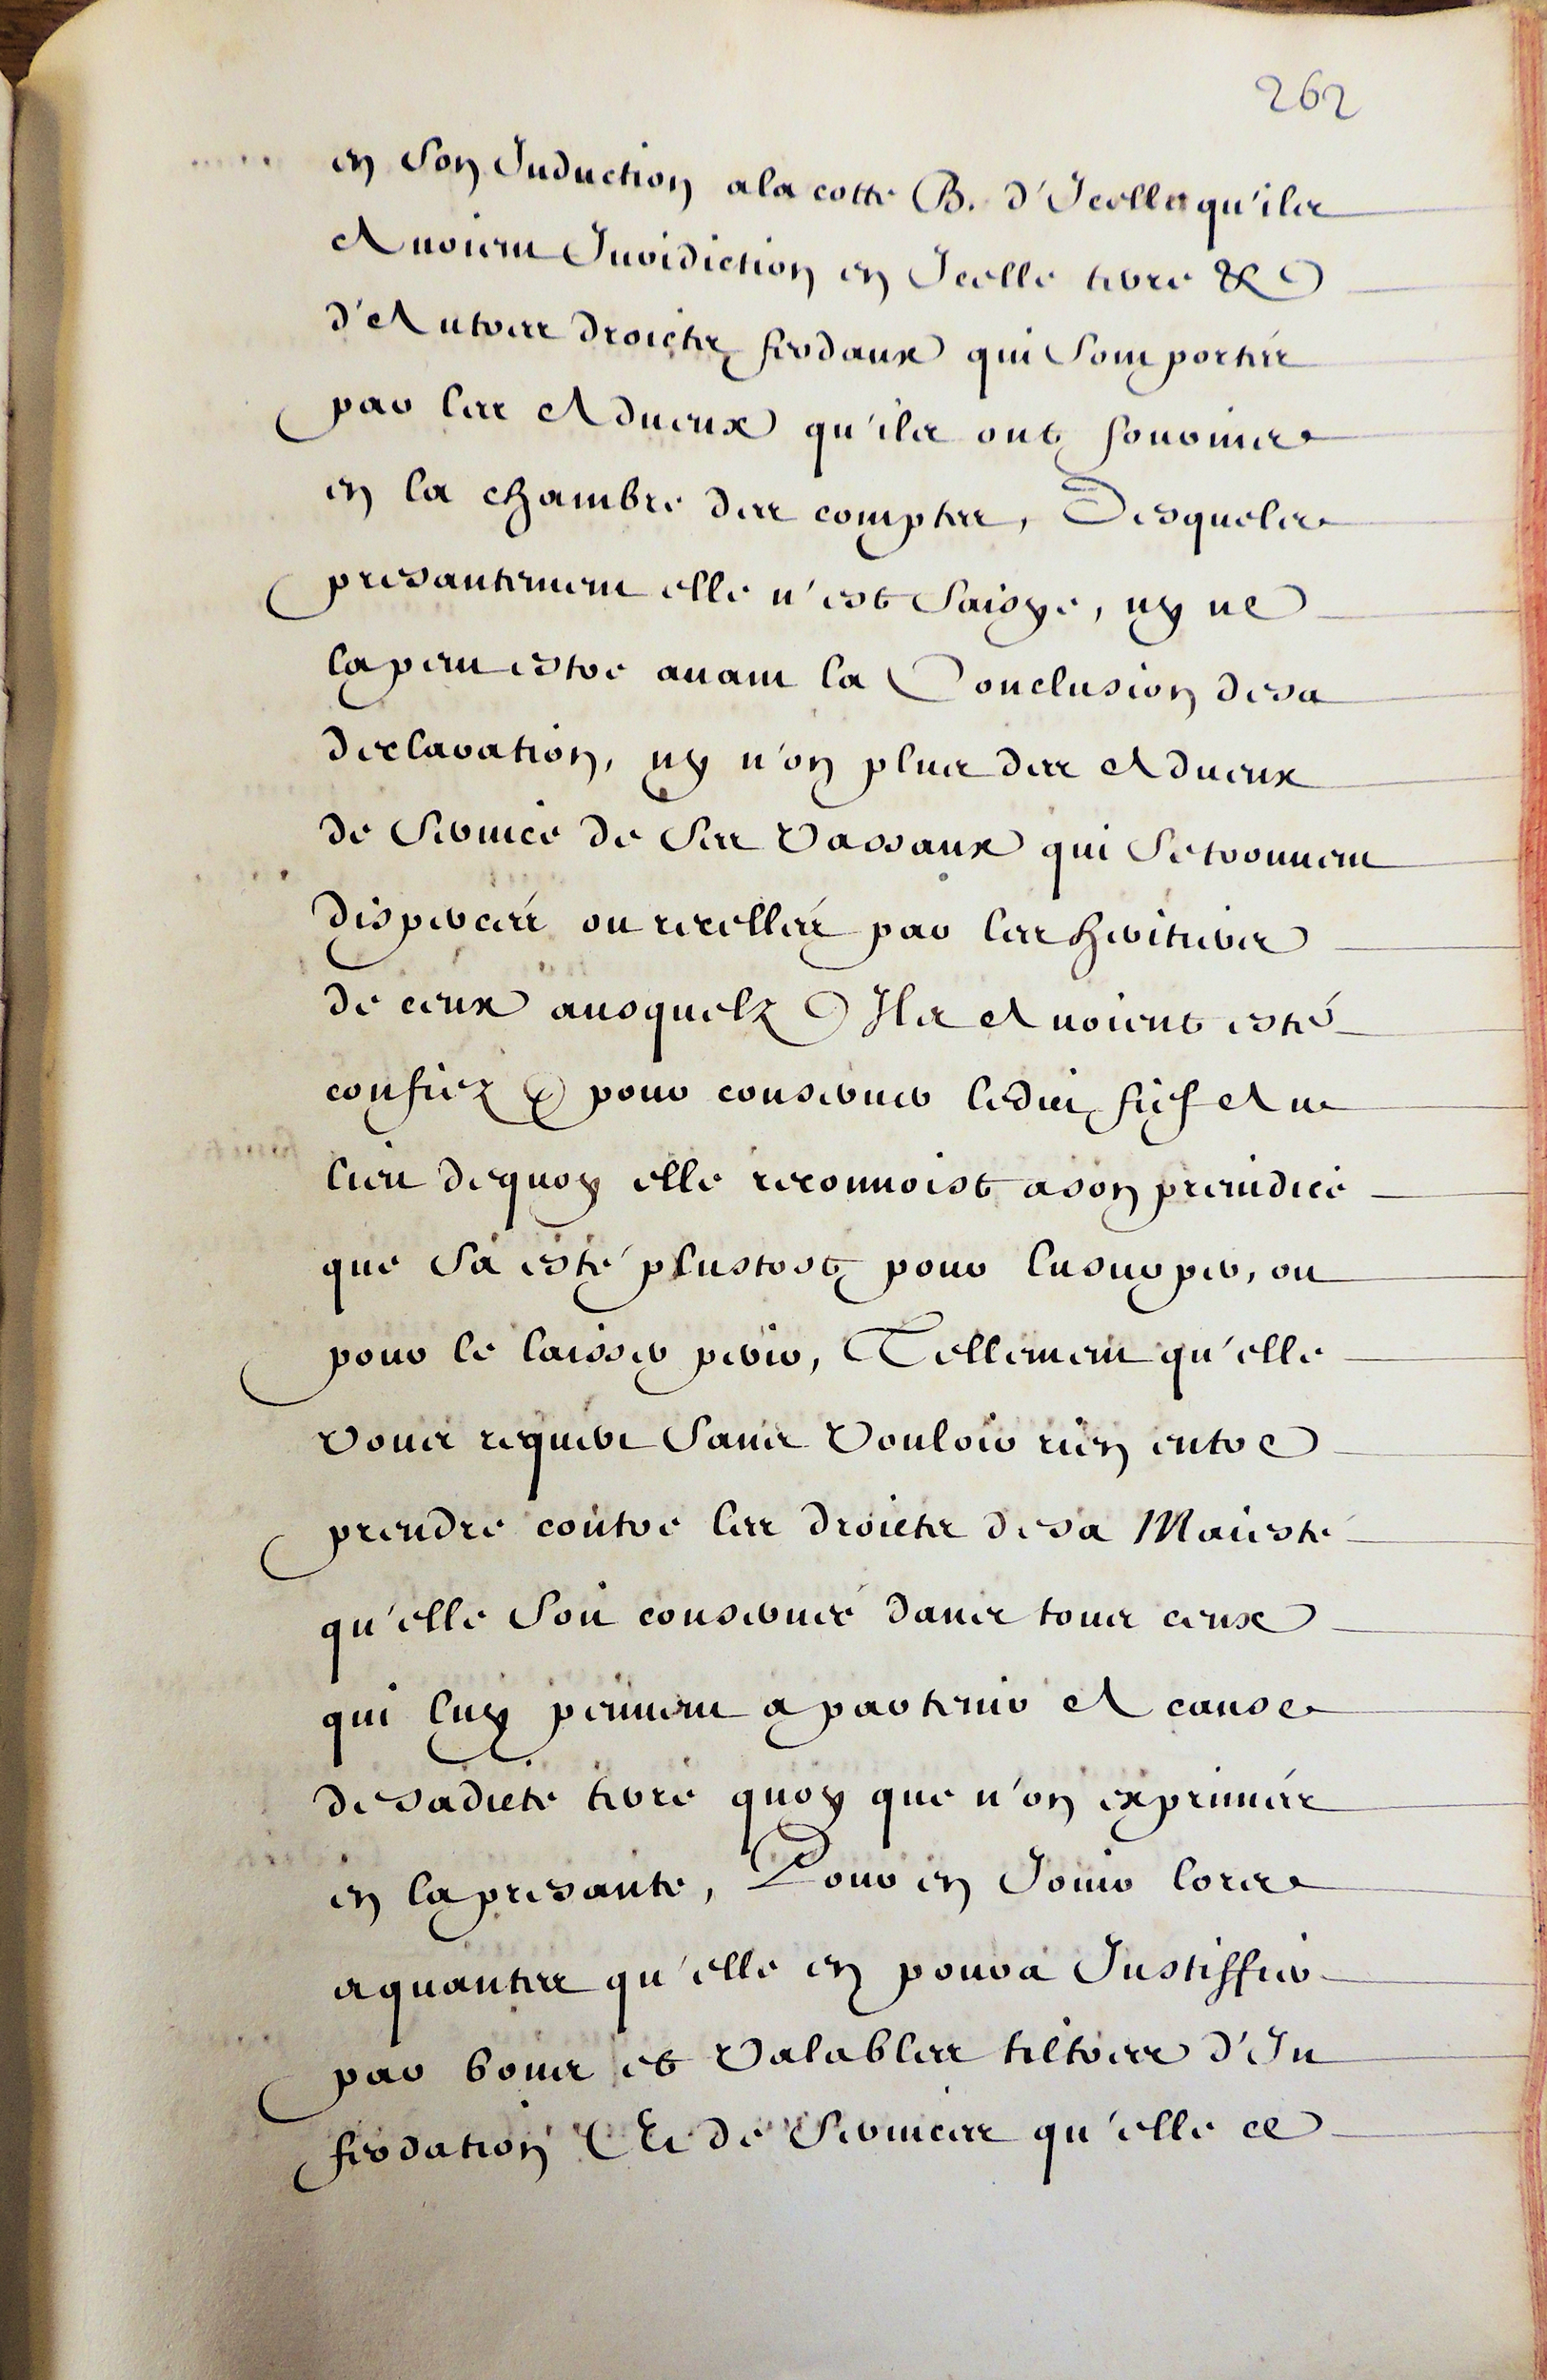 262
en son Induction a la cotte B. d'Icelle qu'ils
Avoient Juridiction en Icelle terre &
d'Autres droicts feodaux qui sont portés
par les Adueux qu'ils ont fournis
en la chambre des comptes, Desquels
presantement elle n'est saisye, ny ne
la peut estre auant la Conclusion de sa
declaration, ny n'on plus des Adueux
de seruice de ses Vassaux qui se trouuent
dispercés ou recellés par les heritiers
de ceux ausquelz Ils Auoient esté
confiez pour conseruer ledict fief Au
lieu dequoy elle reconnoist a son preiudice
que sa esté plustost pour l'usurper, ou
pour le laisser perir, Tellement qu'elle
vous requiert sans Vouloir rien entre
prendre contre les droicts de sa Maiesté
qu'elle soit conseruée dans tous ceux
qui luy peuuent apartenir A cause
de sadicte terre quoy que n'on exprimés
en la presante, Pour en Jouir lors
a quantes qu'elle en poura Justiffier
par bons et Valables tiltres d'In
feodation Et de seruices qu'elle ce